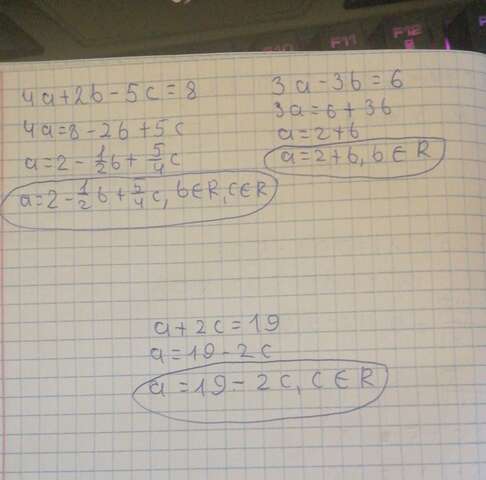 F10 F11 F12
4a+2b-5c=8
4a=8-2b+5c
a=2-\frac{1}{2}b+\frac{5}{4}c
a=2-\frac{1}{2}b+\frac{5}{4}c, b∈R, c∈R
3a-3b=6
3a=6+3b
a=2+b
a=2+b, b∈R
a+2c=19
a=19-2c
a=19-2c, c∈R